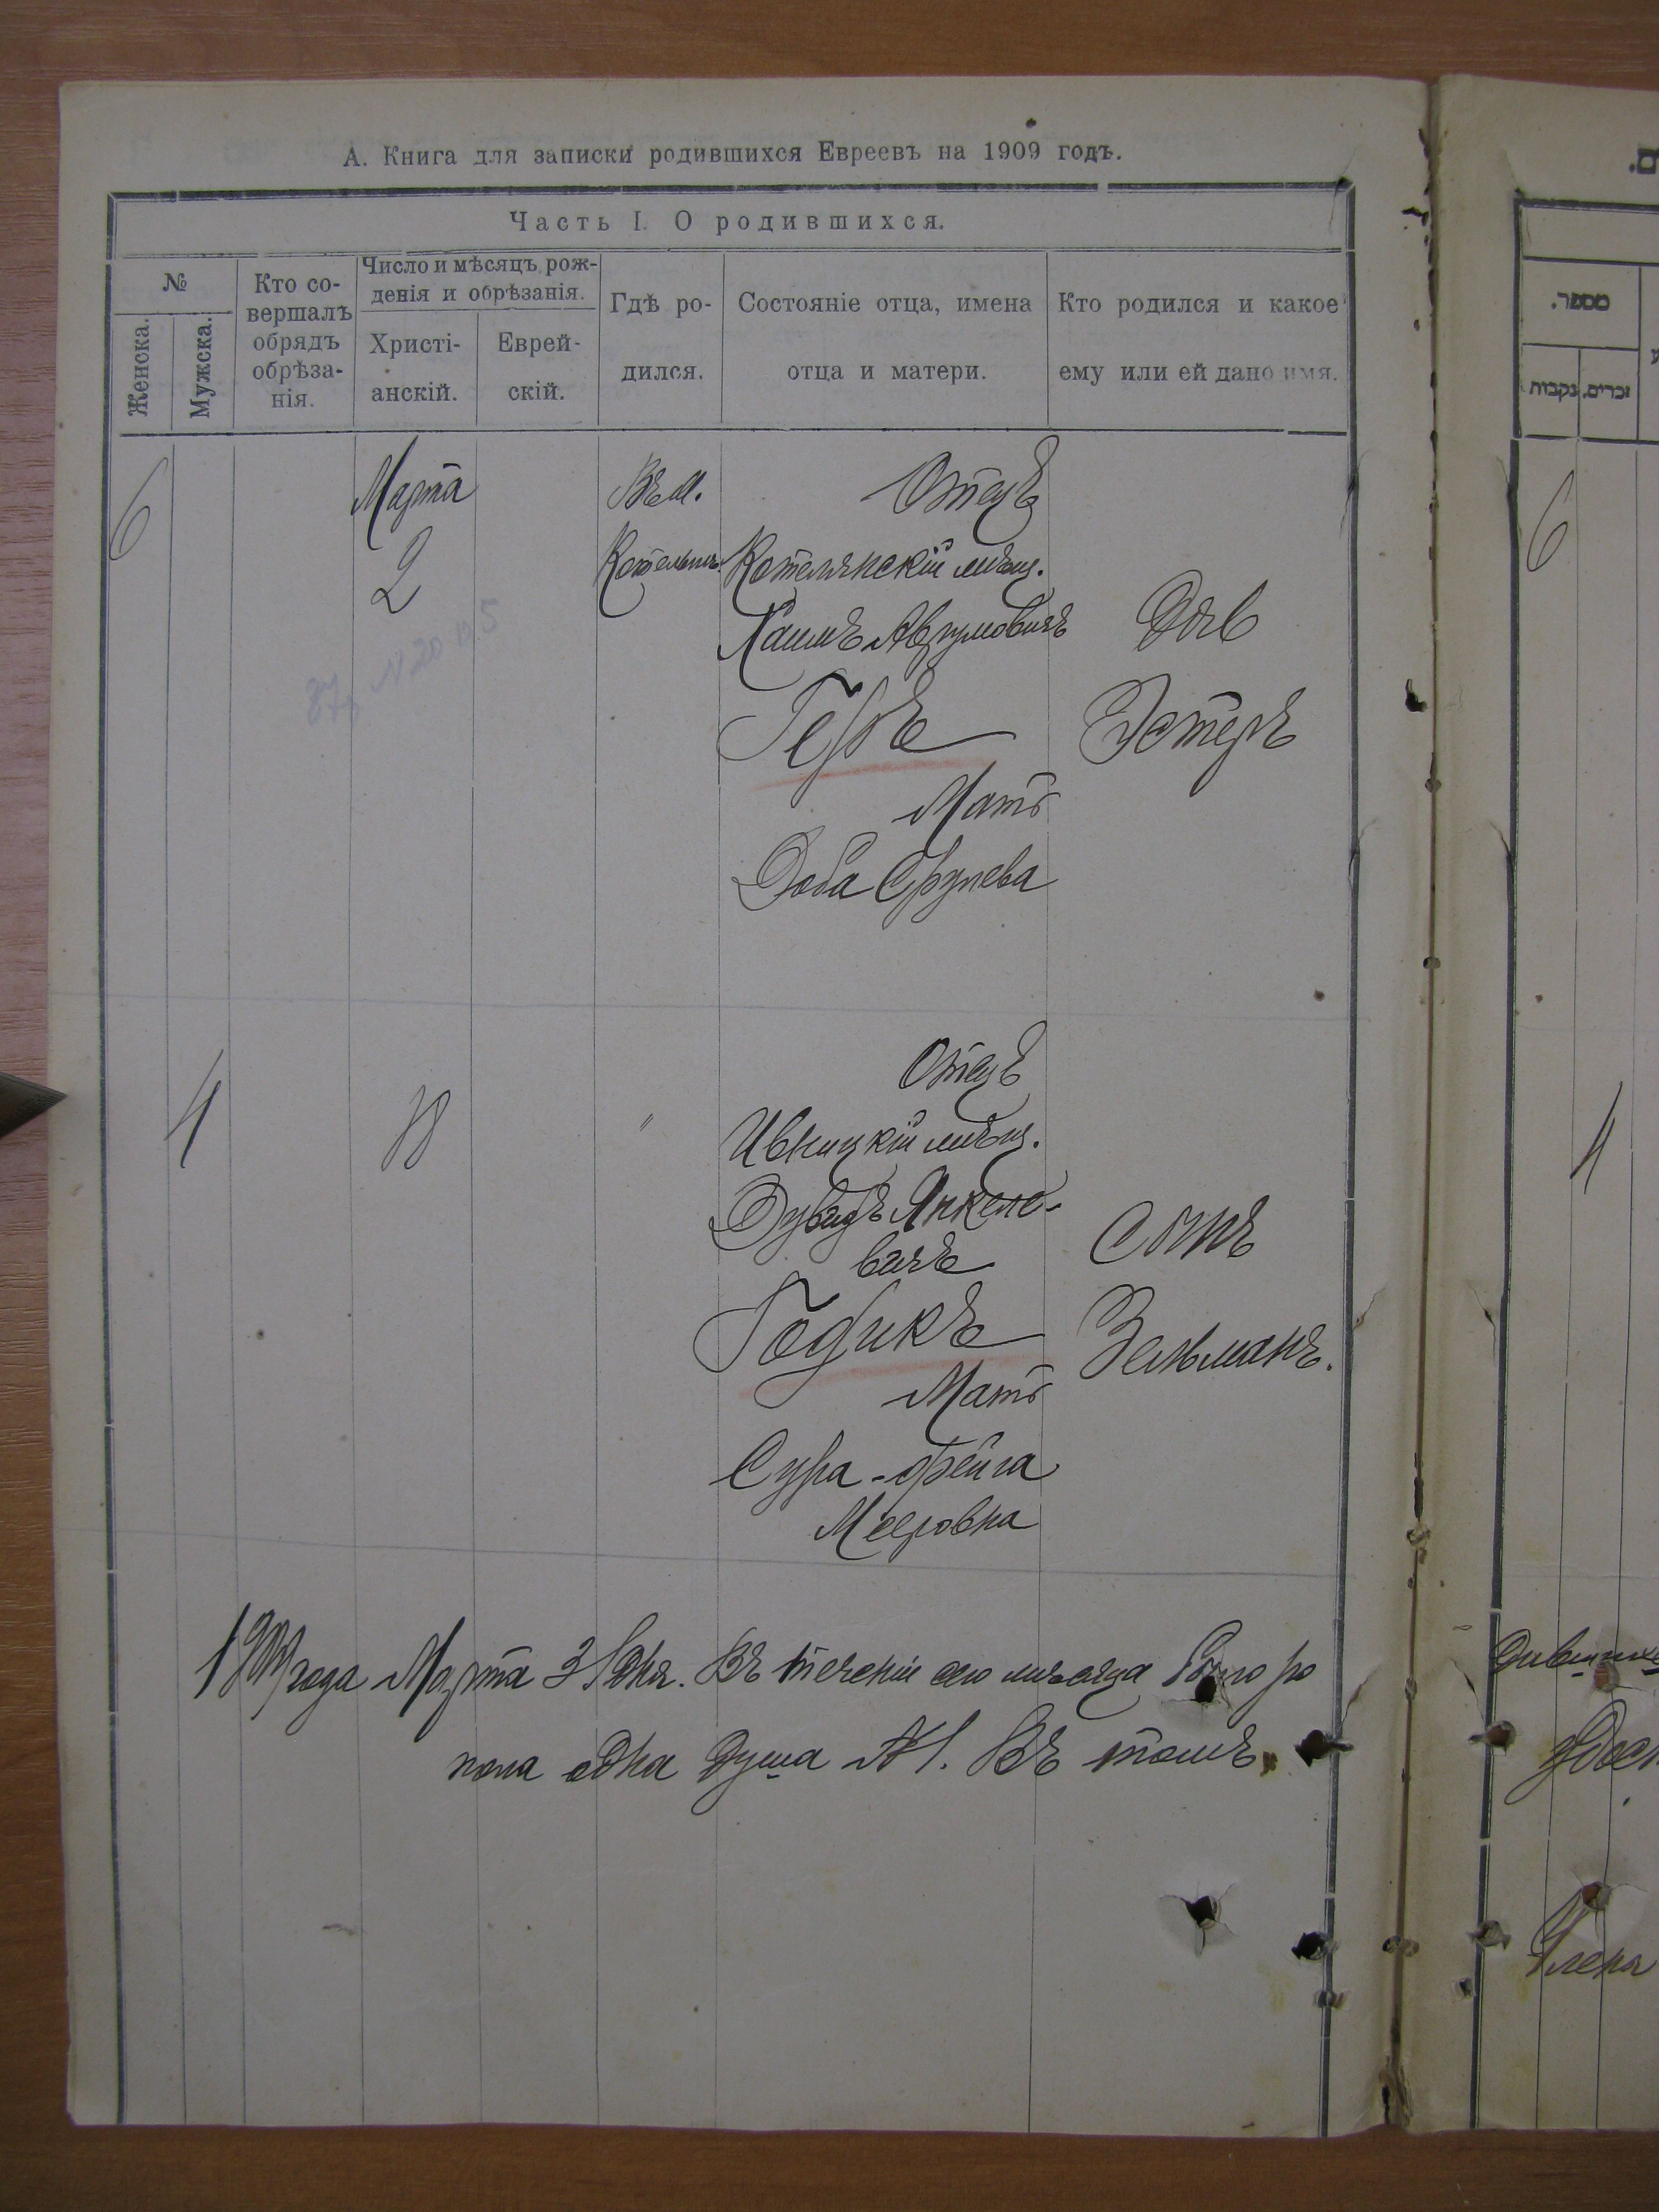 А. Книга для записки родившихся Евреевъ на 1909 годъ.
Часть I. О родившихся.
№
Женска.
Мужска.
Кто со-
вершалъ
обрядъ
обрѣза-
нія.
Число и мѣсяцъ рож-
денія и обрѣзанія.
Христі-
анскій.
Еврей-
скій.
Гдѣ ро-
дился.
Состояніе отца, имена
отца и матери.
Кто родился и какое
ему или ей дано имя.
6
Марта
2
Въ м.
Котельнѣ
Отецъ
Котелянскій мѣщ.
Хаимъ Аврумовичъ
Геръ
Мать
Доба Срулева
Дѣв
Эстеръ
87 N 20 5
4
18
"
Отецъ
Ивницкій мѣщ.
Дувидъ Янкеле-
вичъ
Годикъ
Мать
Сура-Фейга
Мееровна
Сынъ
Зельманъ.
1909 года Марта 31 дня. Въ теченіи сего мѣсяца было ро
пола одна душа №1. Въ томъ
מספר.
נקבות
זכרים.
6
4
дившихс
Члена